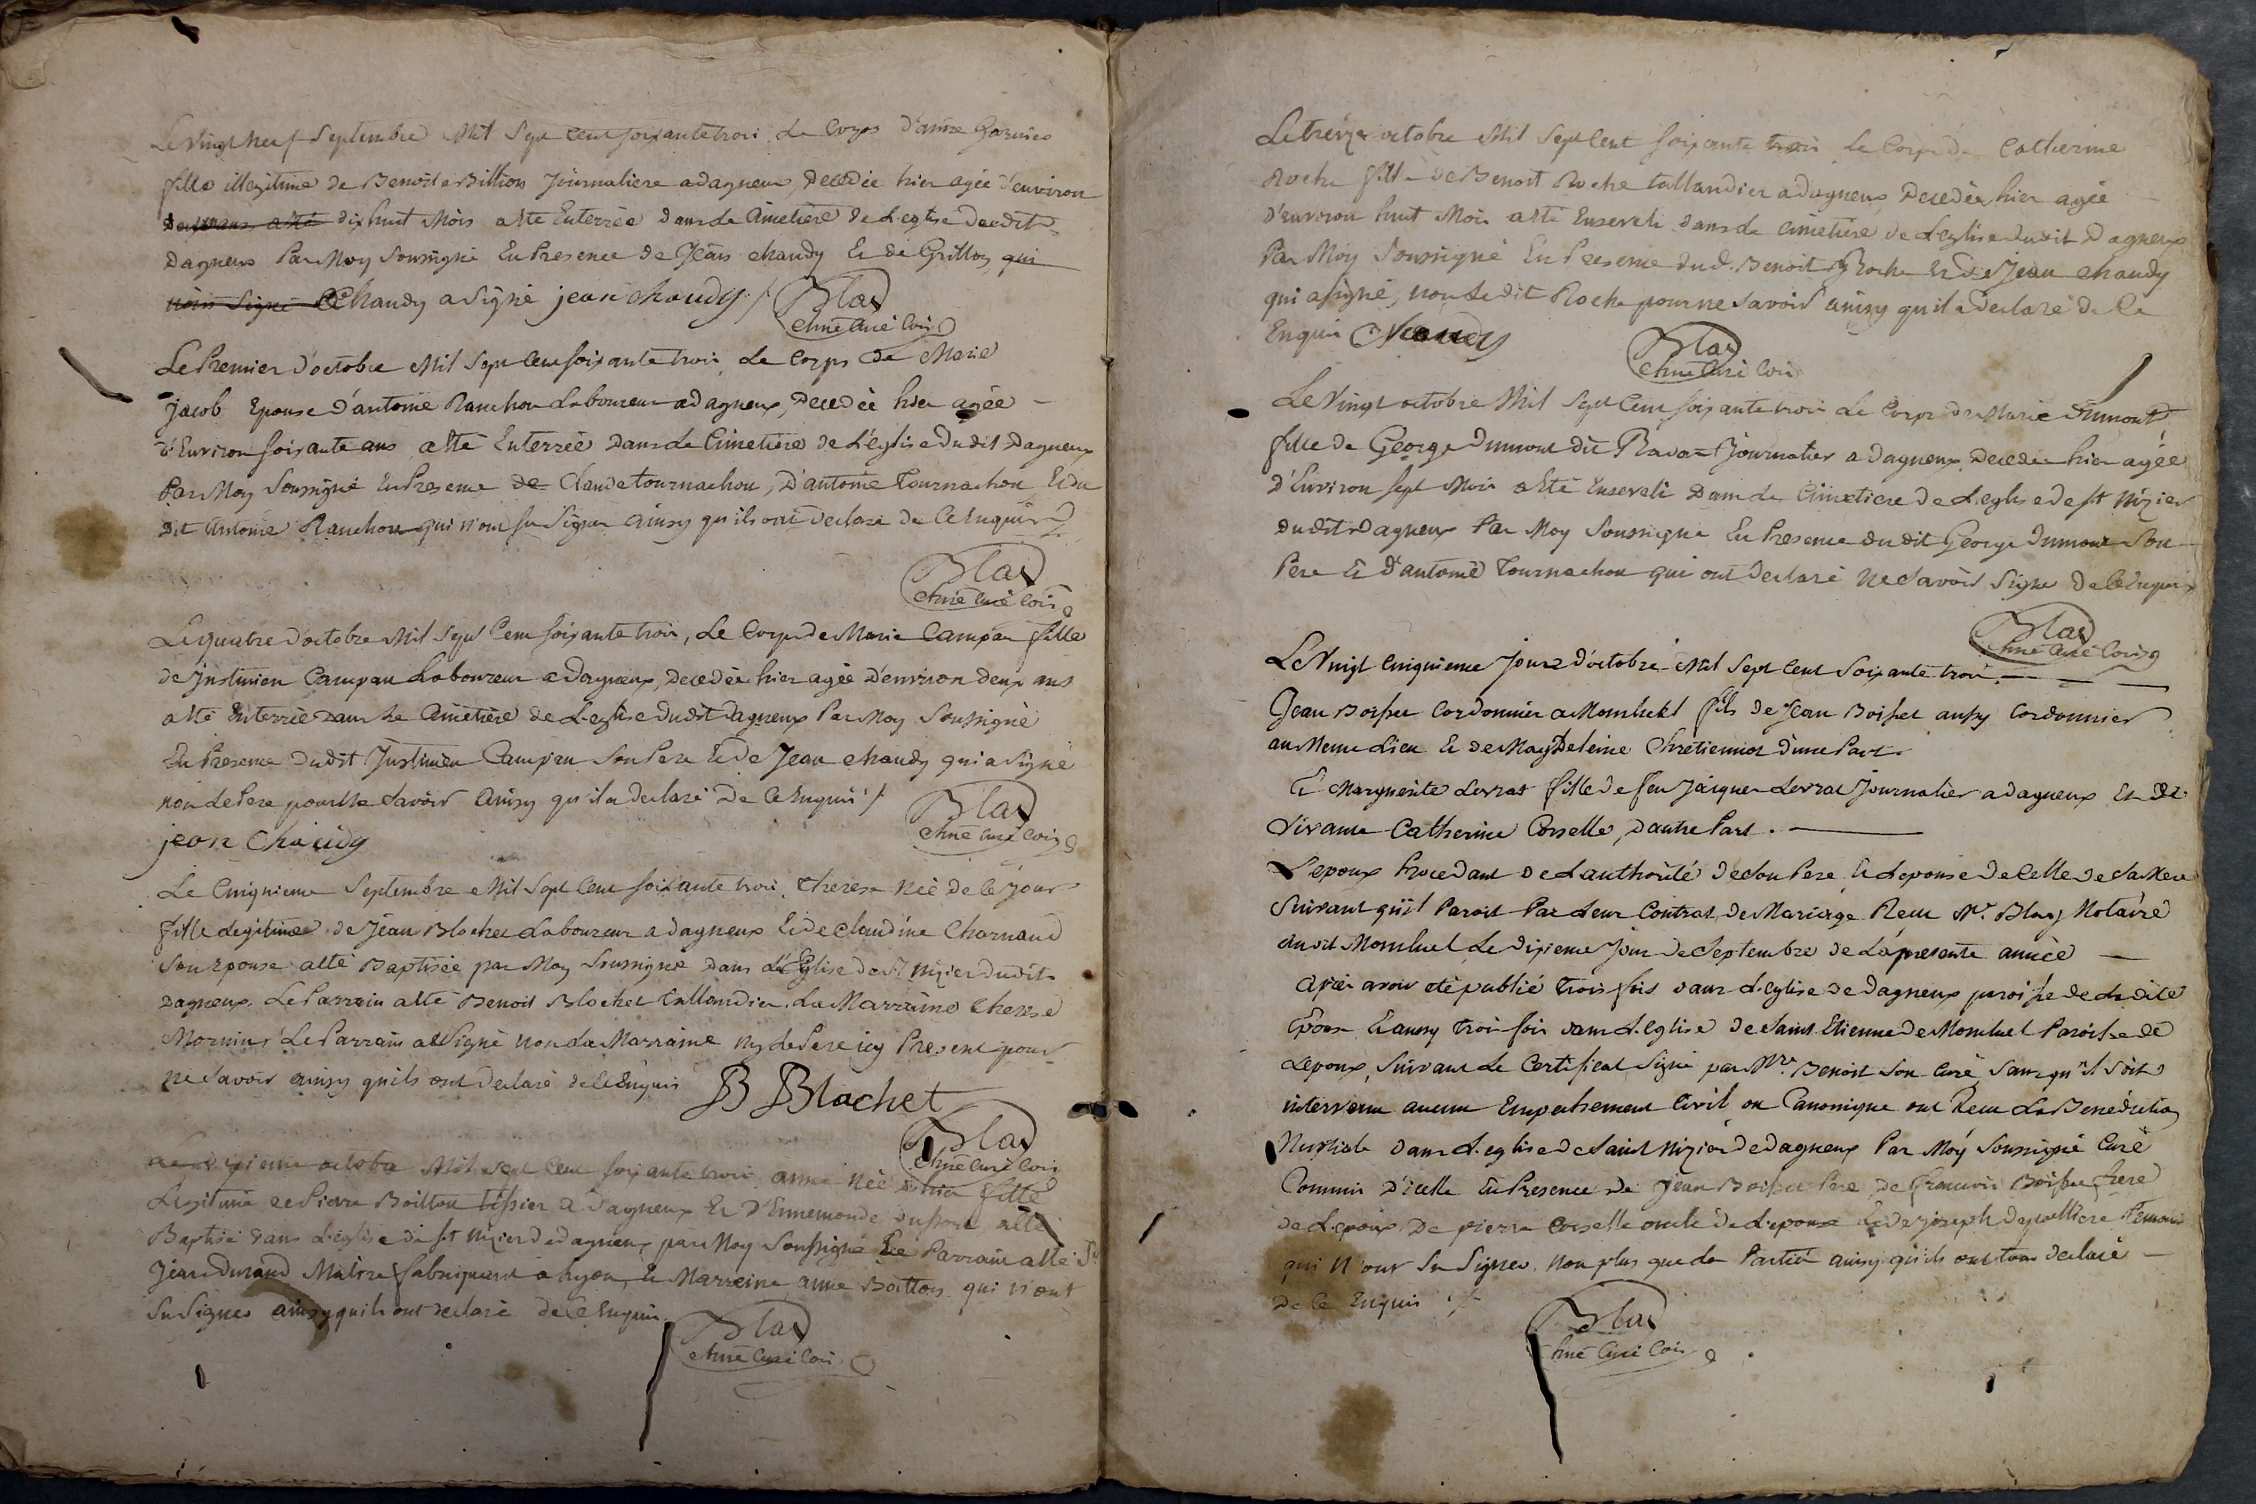 Le Vingt neuf Septembre Mil Sept Cent soixante trois le Corps d'anne Garnier
fille illegitime de Benoite Billion Journaliere a dagneux, Decedée hier agée d'environ
dix huit Mois a été Enterrée dans le Cimetiere de L'eglise du dit
Dagneux Par Moy Soussigné En Presence de Jean chaudy Et de Grillon qui
Chaudy a Signé jean chaudy
Blad
Curé Coin
Le Premier d'octobre Mil Sept Cent soixante trois Le Corps de Marie
Jacob Epouse d'antoine Ranchon Laboureur a dagneux, Decedée hier agée
d'Environ soixante ans a été Enterrée Dans le Cimetiere de L'église Du dit Dagneux
Par Moy Soussigné En Presence de Claude tournachon, D'antoine Tournachon Et du
Dit Antoine Ranchon qui n'ont su Signer Ainsy qu'ils ont declaré de Ce Enquis
Blad
Curé Coin
Le quatre d'octobre Mil Sept Cent soixante trois, Le Corps de Marie Campan fille
de Justinien Campan Laboureur a Dagneux, Decedée hier agée D'environ deux ans
a été Enterrée dans Le Cimetiere de L'eglise du dit Dagneux Par Moy Soussigné
En Presence Du dit Justinien Campan Son Pere Et de Jean chaudy qui a Signé
non le Pere pour Ne Savoir Ainsy qu'il a declaré De Ce Enquis
Blad
Curé Coin
jean Chaudy
Le Cinquieme Septembre Mil Sept Cent soixante trois, therese Née de Ce Jour
fille Legitime de Jean Blochet Laboureur a dagneux Et de Claudine Charnaud
Son Epouse a été Baptisée par Moy Soussigné Dans L'Eglise de St Nizier du dit
Dagneux. Le Parrain a été Benoit Blochet tallandier. La Marraine therese
Mornin Le Parrain a Signé non la Marraine Ny le Pere icy Present pour
ne Savoir ainsy qu'ils ont declaré de Ce Enquis
B Blachet
Blad
Curé Coin
octobre Mil Sept Cent soixante trois anne née hier fille
Legitime de Pierre Boitton tissier a Dagneux Et d'Ennemonde a été
Baptisée dans L'eglise de St Nizier de dagneux par Moy Soussigné Le Parrain a été
Jean Durand Maitre fabriquant a Lyon, La Marreine anne Boitton qui n'ont
Su Signer ainsy qu'ils ont declaré de Ce Enquis
Blad
Curé Coin
Le treize octobre Mil Sept Cent soixante trois Le Corps de Catherine
Roche fille de Benoit Roche tallandier a Dagneux Decedée hier agée
D'environ huit Mois a été Enseveli dans le Cimetiere de L'eglise du dit Dagneux
Par Moy Soussigné En Presence du d. Benoit Roche Et de Jean chaudy
qui a signé, non Le dit Roche pour ne Savoir ainsy qu'il a Declaré de Ce
Enquis Chaudy
Blad
Curé Coin
Le Vingt octobre Mil Sept Cent soixante trois Le Corps de Marie Dumont
fille de George Dumont dit Rava Journalier a Dagneux Decedée hier agée
d'Environ sept Mois a été Enseveli Dans le Cimetiere de L'eglise de St Nizier
du dit Dagneux Par Moy Soussigné En Presence du dit George Dumont Son
Pere Et d'antoine Tournachon qui ont declaré Ne Savoir Signer de Ce Enquis
Blad
Curé Coin
Le Vingt Cinquieme Jour D'octobre Mil Sept Cent Soixante trois
Jean Boisset Cordonnier a Montluel fils de Jean Boisset aussy Cordonnier
au Meme Lieu Et de Magdeleine Chretiennot d'une Part
Et Marguerite Levrat fille de feu Jaique Levrat Journalier a dagneux Et de
Vivante Catherine Corselle, d'autre Part.
L'epoux Procedant de L'authorité de son Pere Et L'epouse de Celle de sa Mere
Suivant qu'il Paroit Par Leur Contrat de Mariage Recu Mr Blanj Notaire
du dit Montluel Le Dixieme Jour de Septembre de La presente année
Apres avoir été publié trois fois dans L'eglise de Dagneux paroisse de La dite
Epouse Et aussy trois fois dans L'eglise de Saint Etienne de Montluel Paroisse de
L'epoux, Suivant Le Certificat Signé par Mre Benoit Son Curé, Sans qu'il Soit
intervenu aucun Empechement Civil ou Canonique ont Recu La Benediction
Nuptiale Dans L'eglise de Saint Nizier de Dagneux Par Moy Soussigné Curé
Commis D'icelle En Presence de Jean Boisset Pere, De francois Boisset frere
de L'epoux, De pierre Corselle oncle de L'epouse Et de Joseph Temoins
qui N'ont Su Signer, Non plus que les Parties ainsy qu'ils ont tous declaré
De Ce Enquis
Blad
Curé Coin